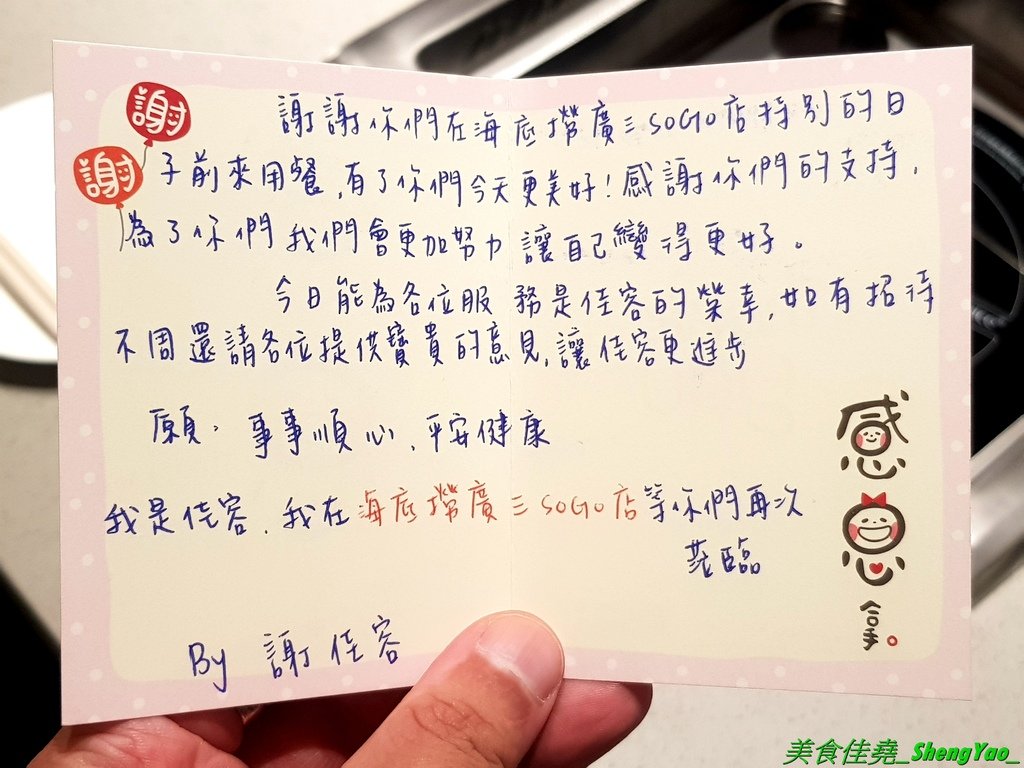 謝
謝
謝謝你們在海底撈廣三SOGO店特別的日
子前來用餐,有了你們今天更美好!感謝你們的支持,
為了你們我們會更加努力讓自己變得更好。
今日能為各位服務是佳容的榮幸,如有招待
不周還請各位提供寶貴的意見,讓佳容更進步
願:事事順心,平安健康
我是佳容,我在海底撈廣三SOGO店等你們再次
蒞臨
By 謝佳容
感
恩
拿。
美食佳堯_ShengYao_